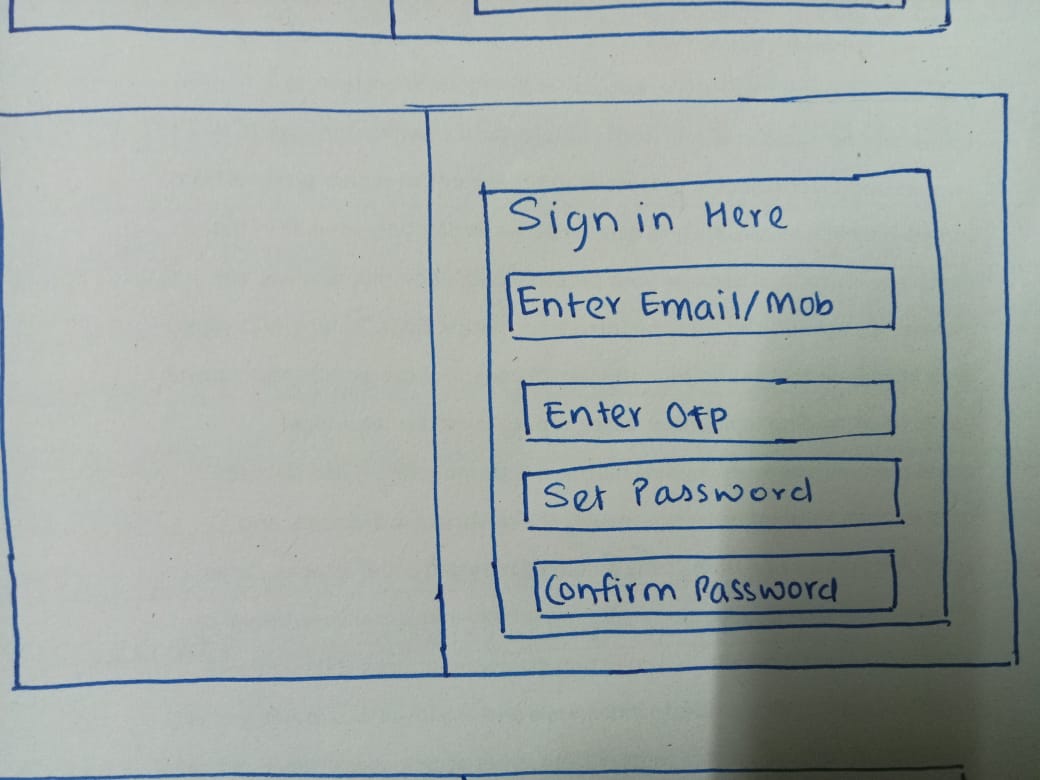 Sign in Here
Enter Email/Mob
Enter Otp
Set Password
Confirm Password